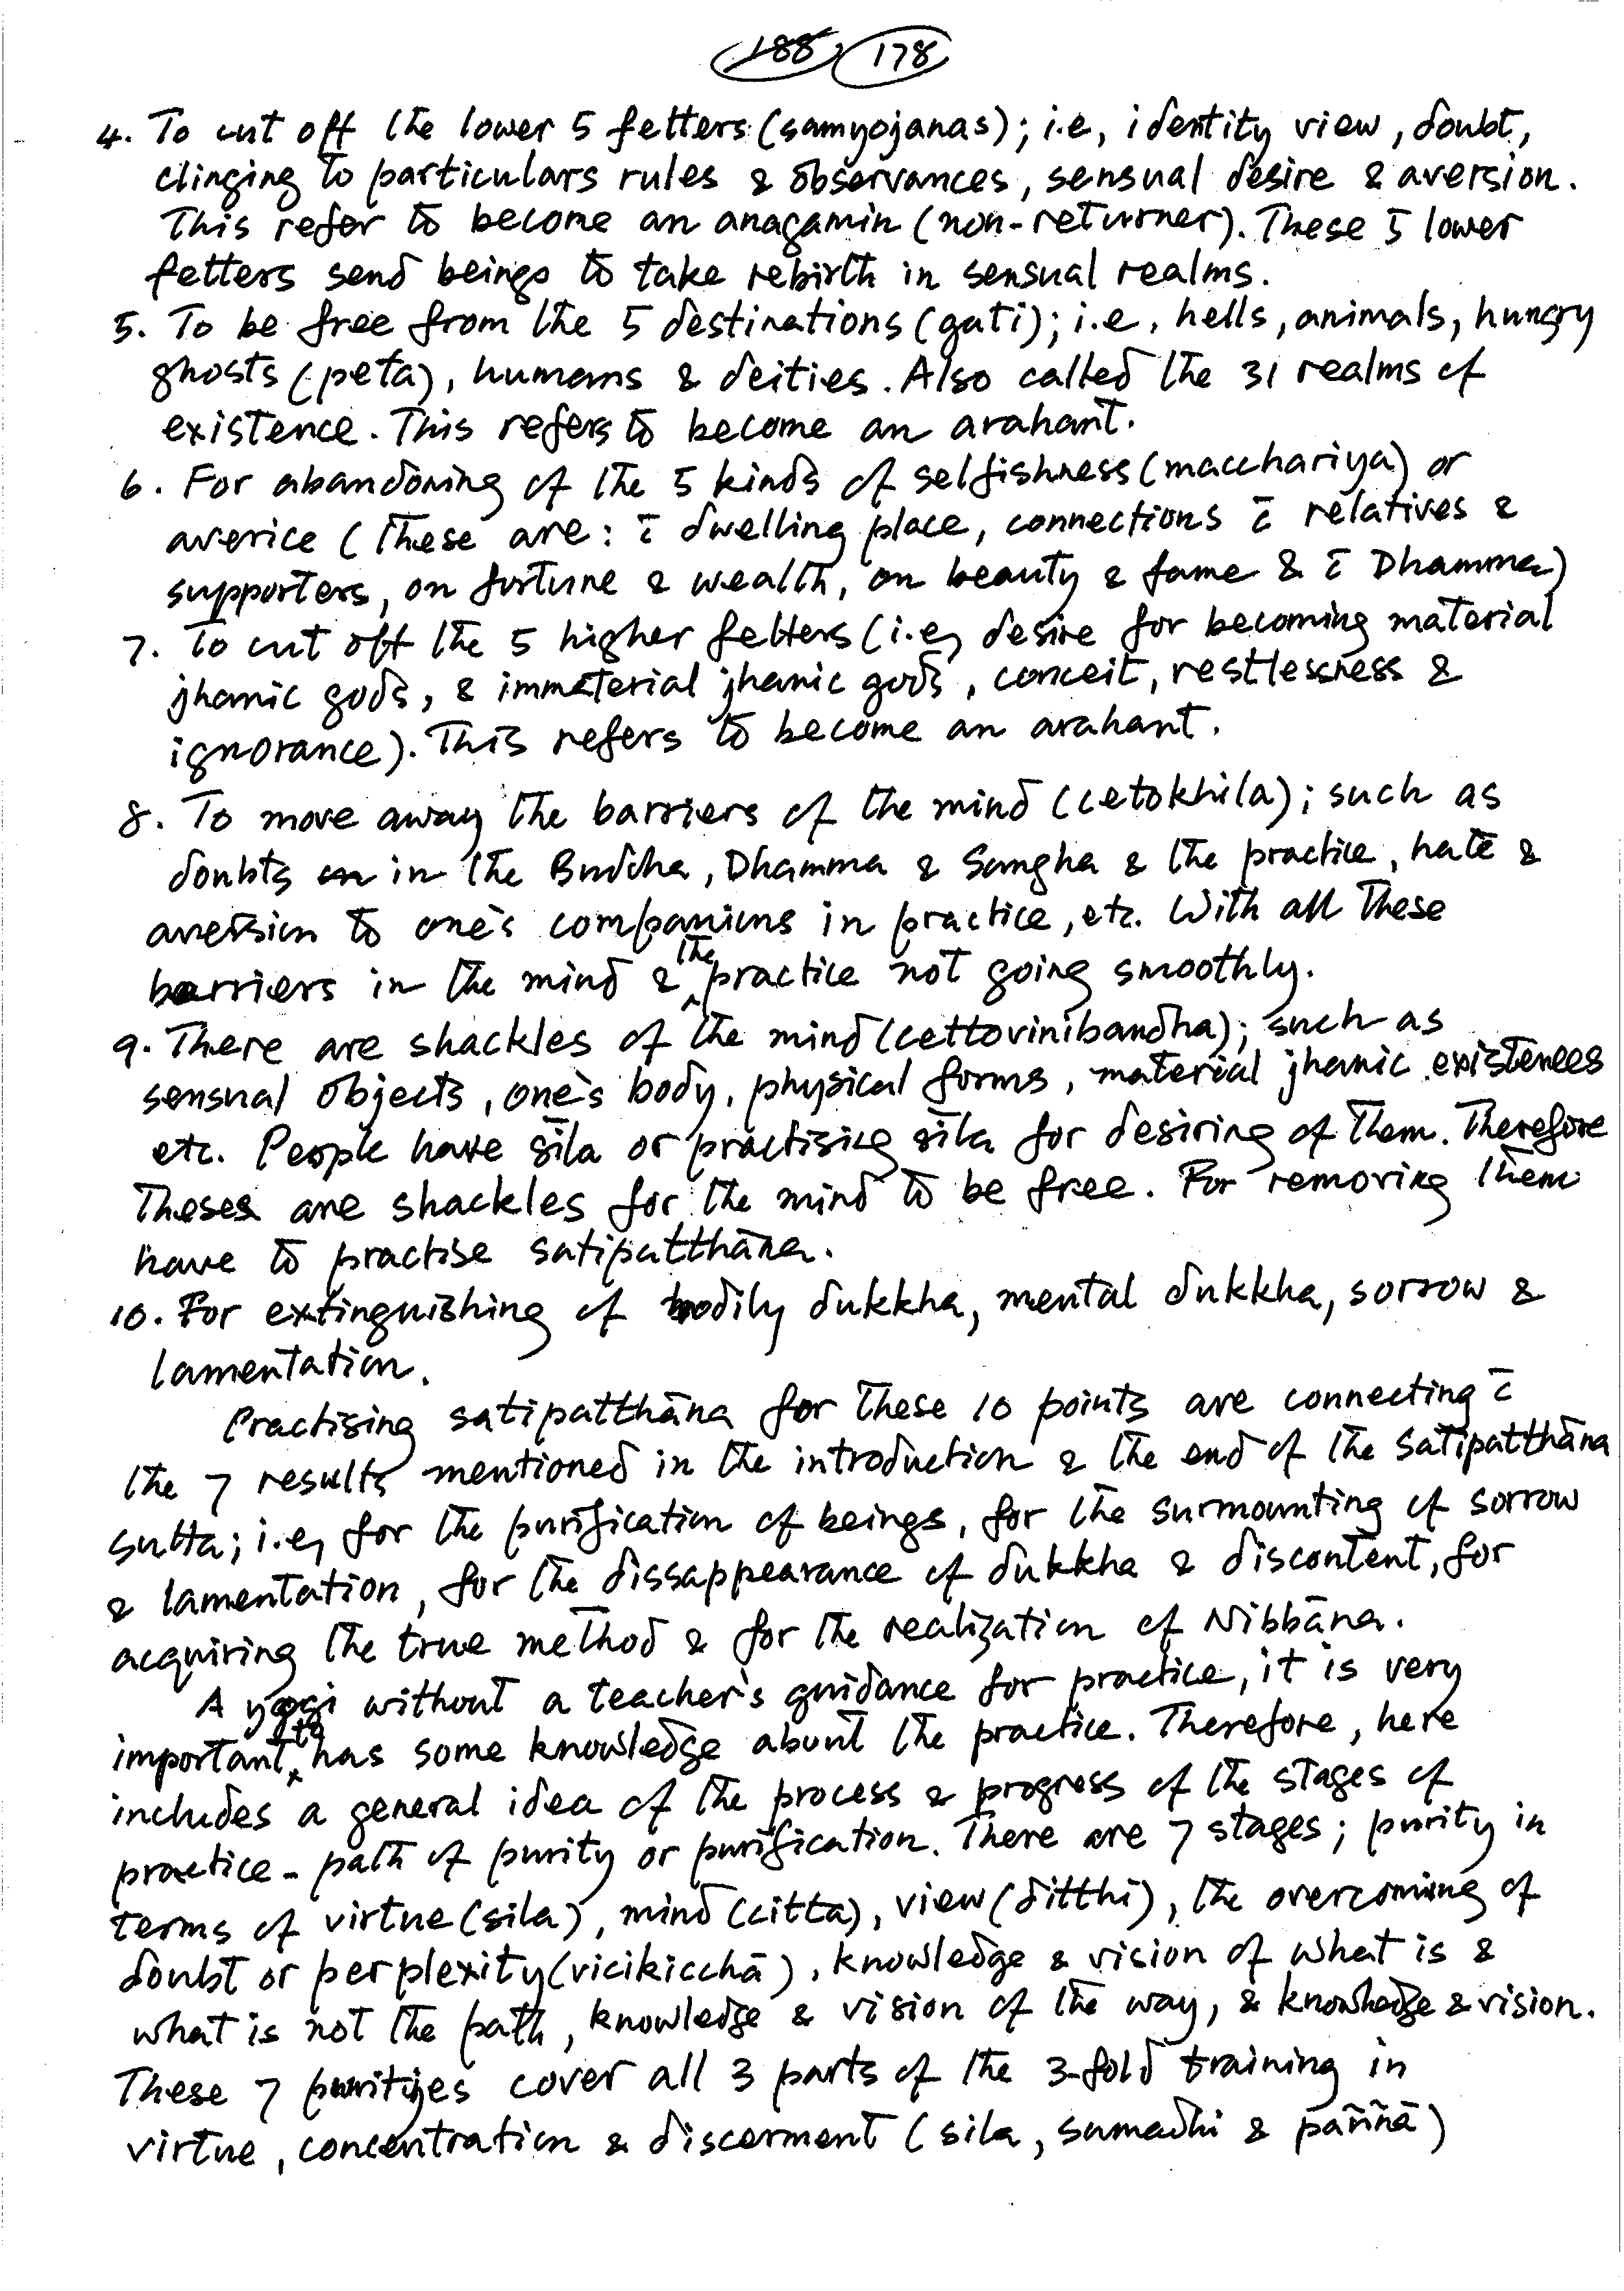 188 178
4. To cut off the lower 5 fetters (samyojanas); i.e, identity view, doubt,
clinging to particulars rules & observances, sensual desire & aversion.
This refer to become an anagamin (non-returner). These 5 lower
fetters send beings to take rebirth in sensual realms.
5. To be free from the 5 destinations (gati); i.e, hells, animals, hungry
ghosts (peta), humans & deities. Also called the 31 realms of
existence. This refers to become an arahant.
6. For abandoning of the 5 kinds of selfishness (macchariya) or
averice (these are: c̄ dwelling place, connections c̄ relatives &
supporters, on fortune & wealth, on beauty & fame & c̄ Dhamma)
7. To cut off the 5 higher fetters (i.e, desire for becoming material
jhanic gods, & immaterial jhanic gods, conceit, restlessness &
ignorance). This refers to become an arahant.
8. To move away the barriers of the mind (cetokhila); such as
doubts in the Buddha, Dhamma & Sangha & the practice, hate &
aversion to one's companions in practice, etc. With all these
barriers in the mind & the practice not going smoothly.
9. There are shackles of the mind (cettovinibandha); such as
sensual objects, one's body, physical forms, material jhanic existences
etc. People have sīla or practising sīla for desiring of them. Therefore
Theses are shackles for the mind to be free. For removing them
have to practise satipatthāna.
10. For extinguishing of bodily dukkha, mental dukkha, sorrow &
lamentation.
Practising satipatthāna for these 10 points are connecting c̄
the 7 results mentioned in the introduction & the end of the Satipatthāna
Sutta; i.e, for the purification of beings, for the surmounting of sorrow
& lamentation, for the dissappearance of dukkha & discontent, for
acquiring the true method & for the realization of Nibbāna.
A yogi without a teacher's guidance for practice, it is very
important to has some knowledge about the practice. Therefore, here
includes a general idea of the process & progress of the stages of
practice - path of purity or purification. There are 7 stages; purity in
terms of virtue (sila), mind (citta), view (ditthi), the overcoming of
doubt or perplexity (vicikicchā), knowledge & vision of what is &
what is not the path, knowledge & vision of the way, & knowledge & vision.
These 7 purities cover all 3 parts of the 3-fold training in
virtue, concentration & discernment (sila, samadhi & paññā)